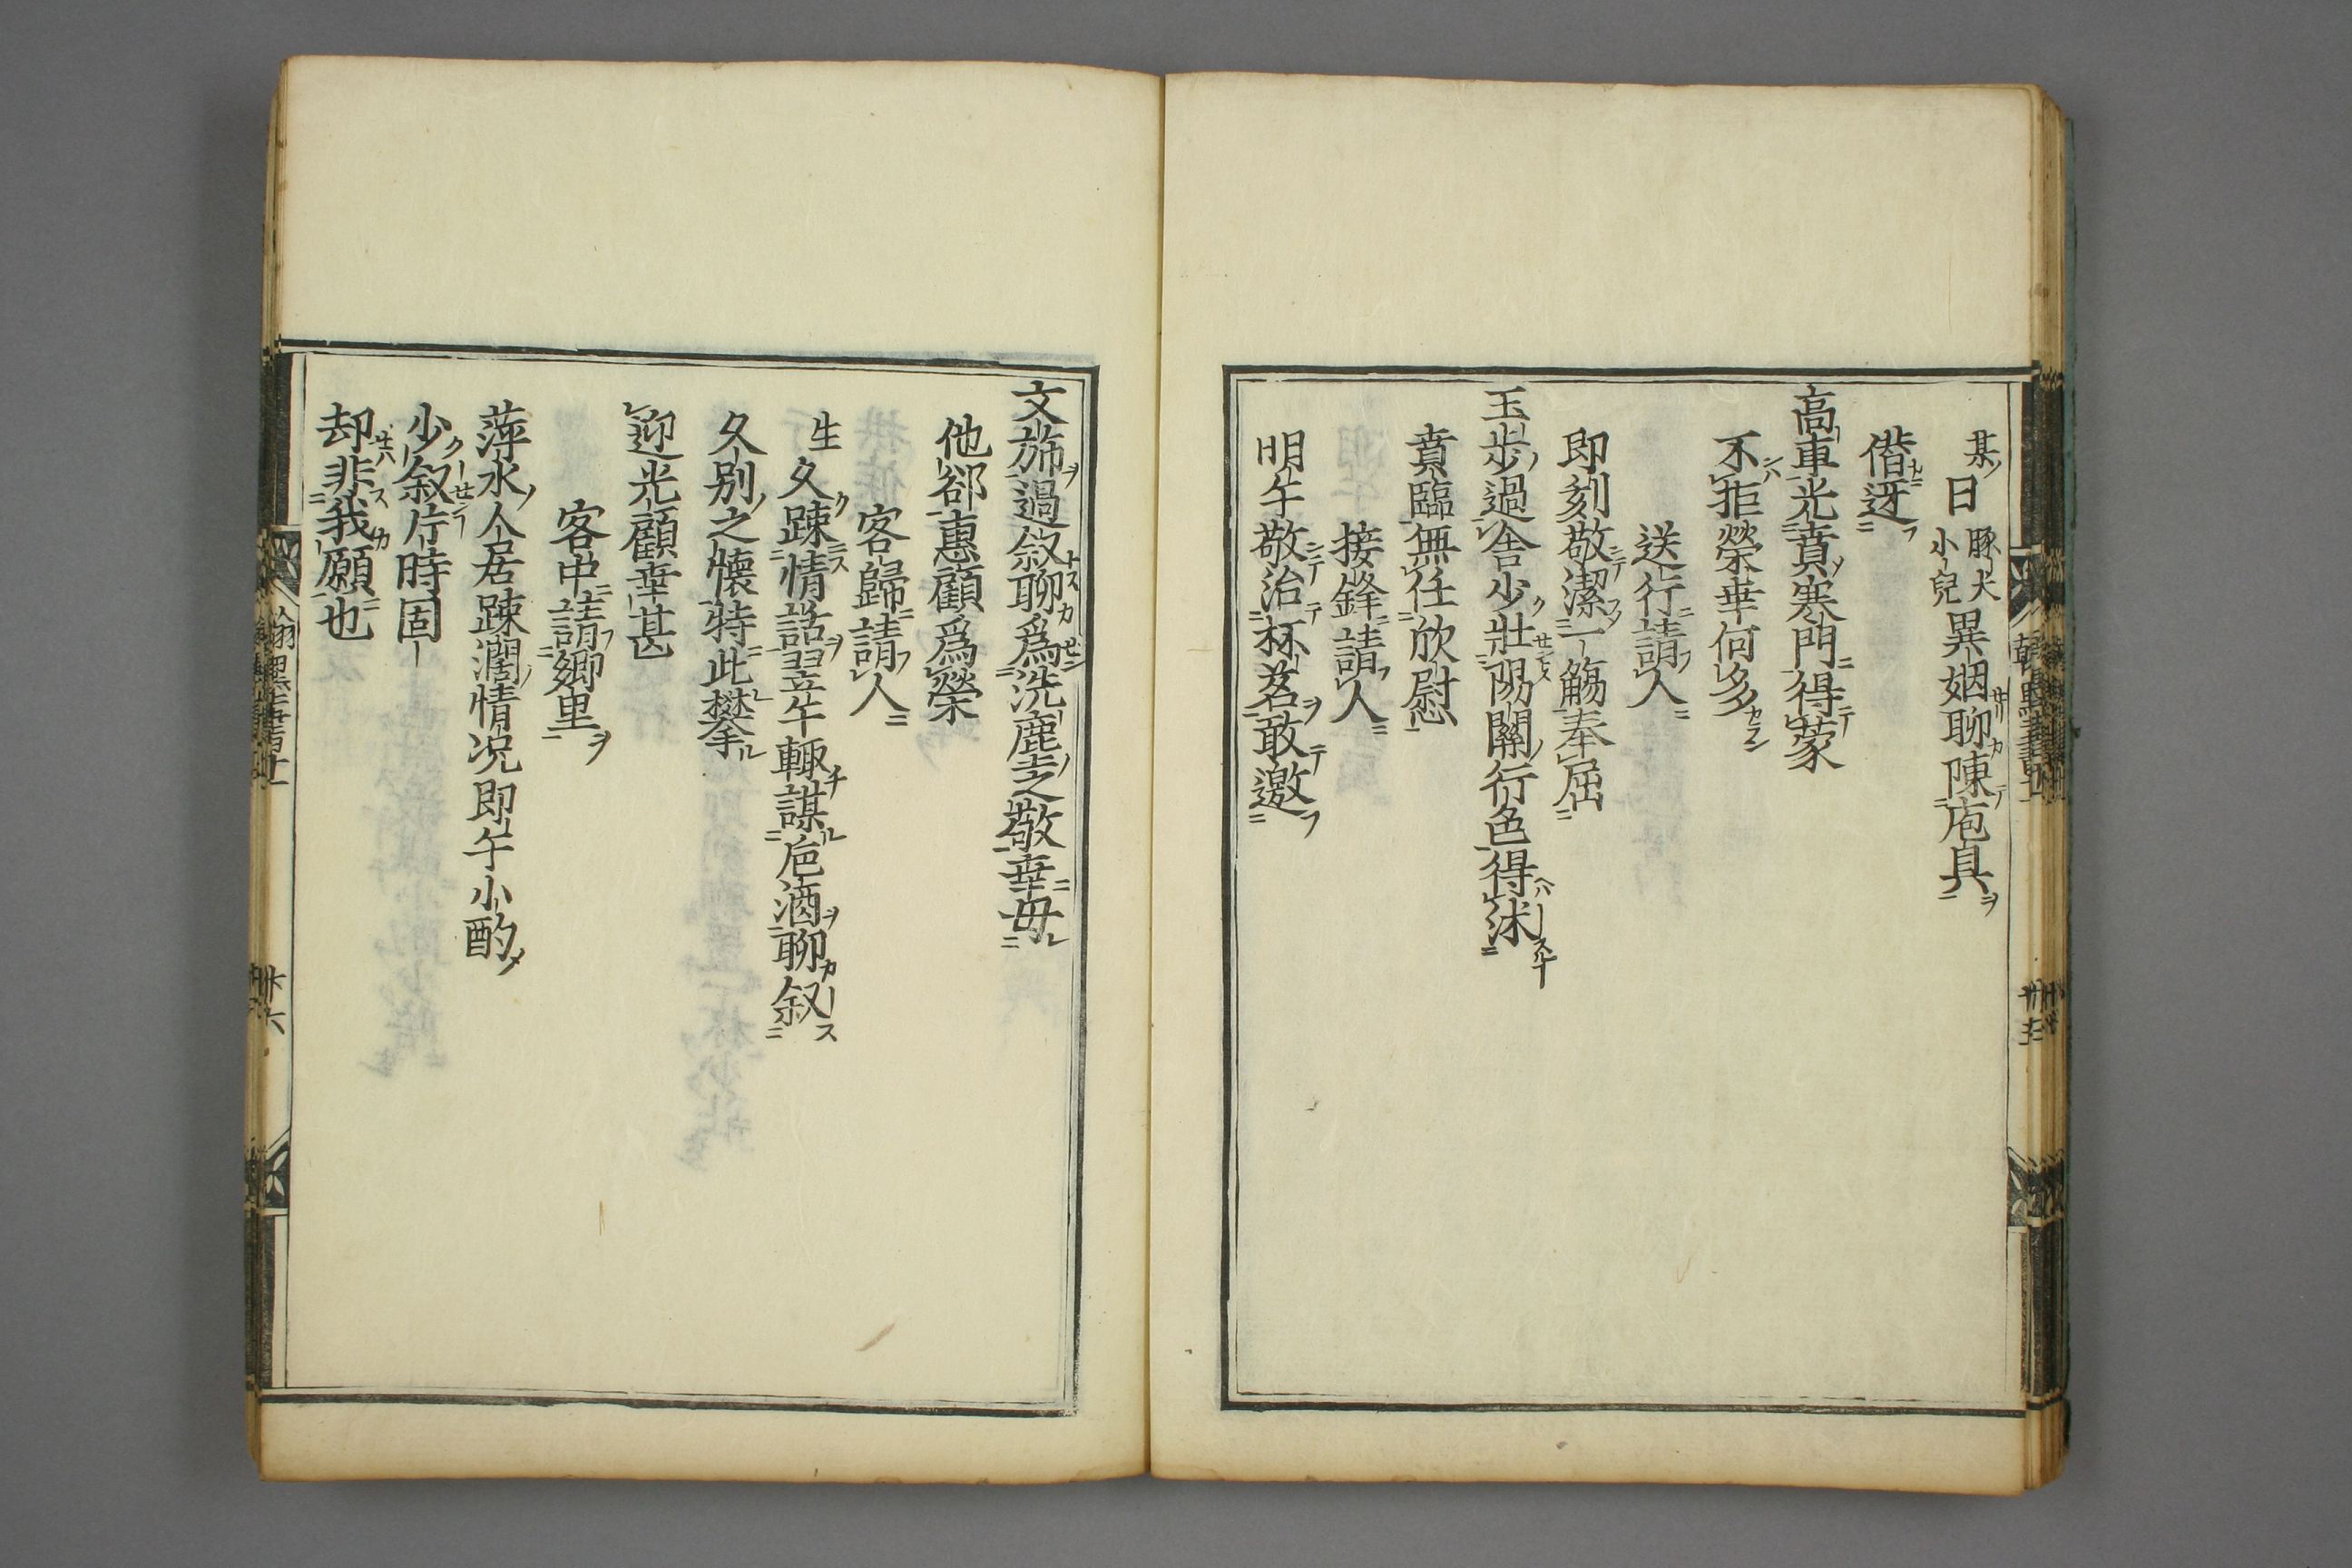 某日豚犬小兒異姻聊陳庖具
偕迓
高車光賁寒門得蒙
不拒榮幸何多
送行請人
即刻敬潔一觴奉屈
玉歩過舎少壯陽關行色得沐
賁臨無任欣慰
接鋒請人
明午敬治杯茗敢邀
文旆過叙聊爲洗塵之敬幸毋
他郤惠顧爲榮
客歸請人
生久踈情話翌午輙謀巵酒聊叙
久别之懐特此攀
迎光顧幸甚
客中請郷里
萍水人居踈濶情况即午小酌
少叙片時固
却非我願也
翰墨全書上
廿六